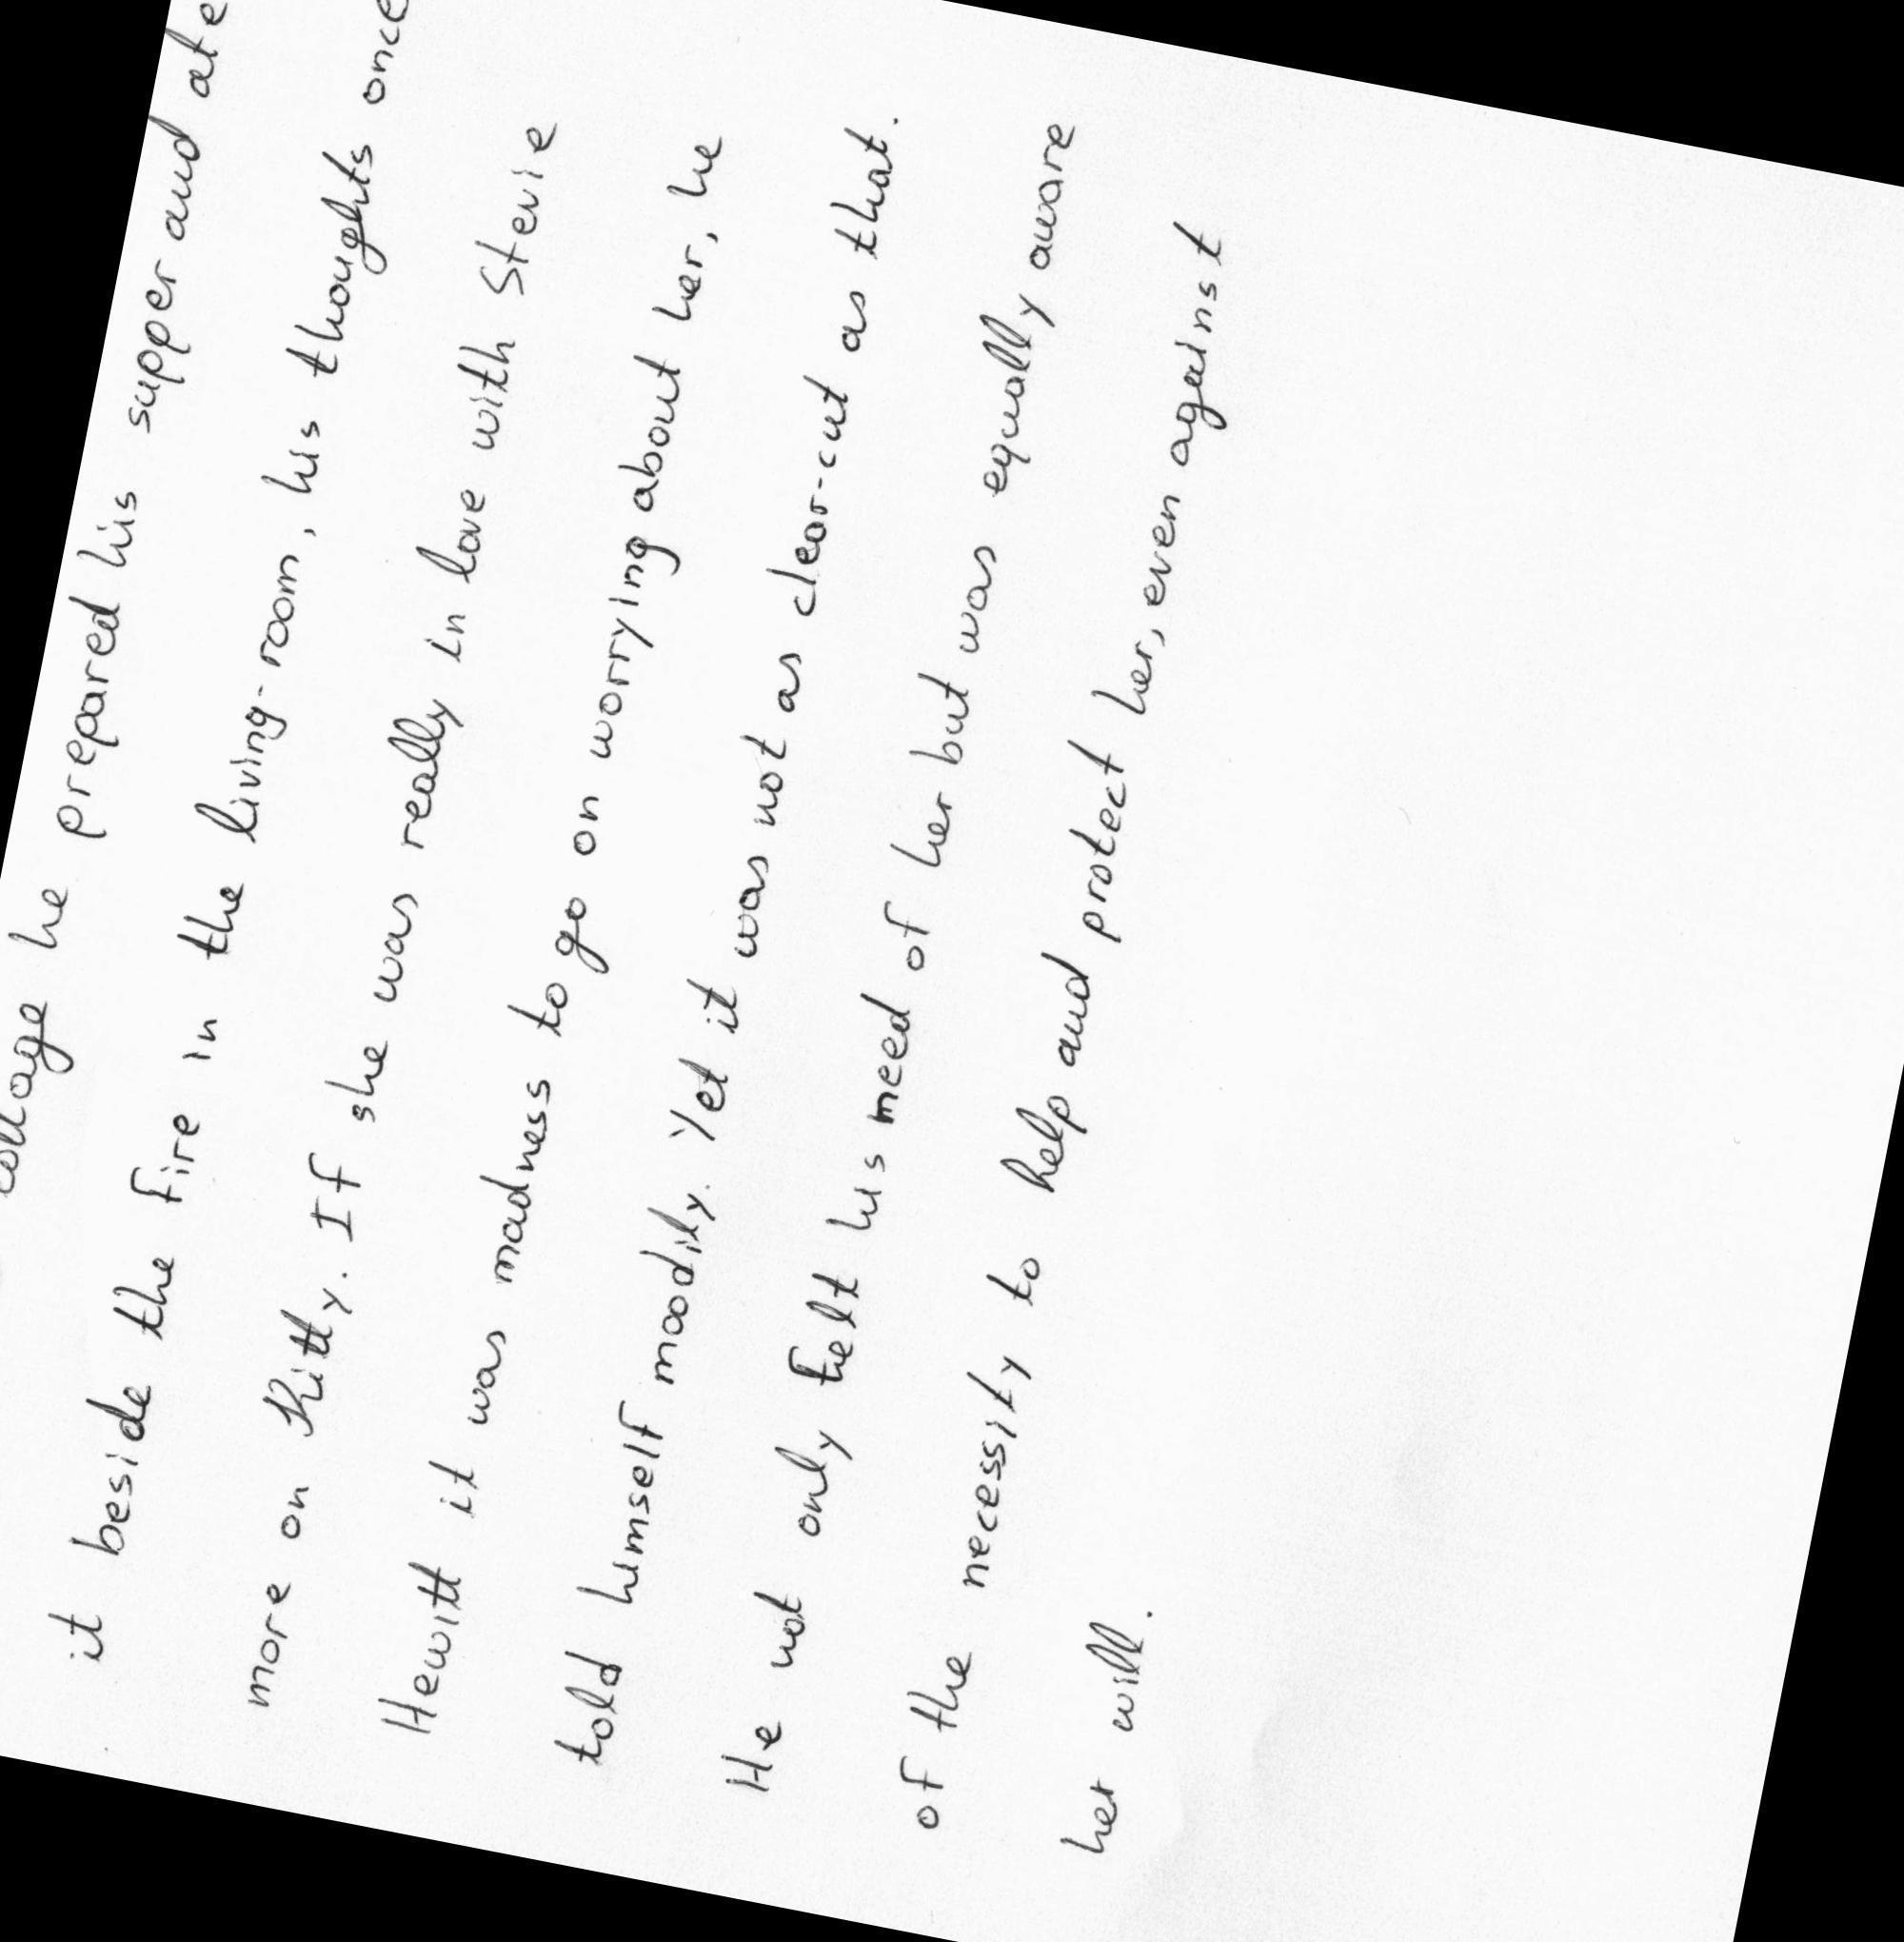 cottage he prepared his supper and ate
it beside the fire in the living-room, his thoughts once
more on Kitty. If she was really in love with Stevie
Hewitt it was madness to go on worrying about her, he
told himself moodily. Yet it was not as clear-cut as that.
He not only felt his need of her but was equally aware
of the necessity to help and protect her, even against
her will.